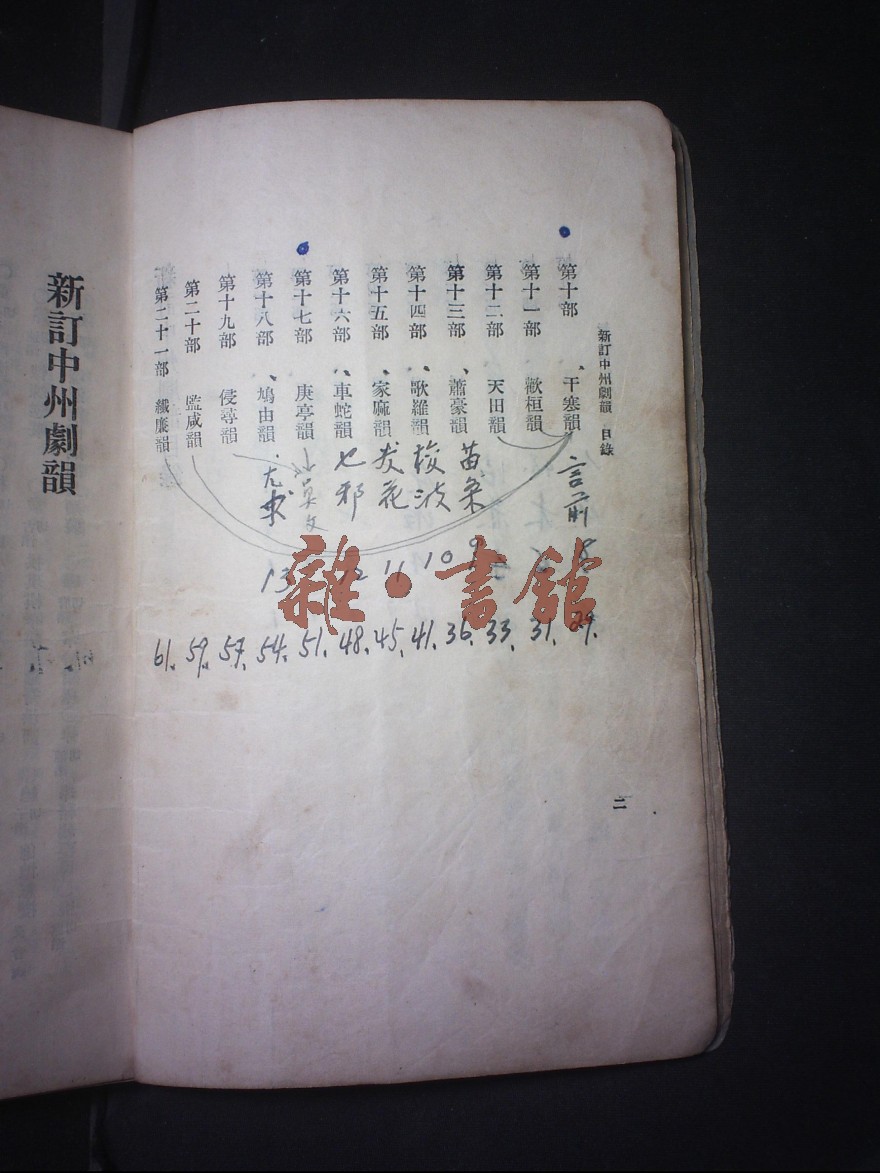 新訂中州劇韻 目錄
第十部 干寒韻 言前 8 29.
第十一部 歡桓韻 31.
第十二部 天田韻 33.
第十三部 蕭豪韻 苗条 9 36.
第十四部 歌羅韻 梭波 10 41.
第十五部 家麻韻 发花 11 45.
第十六部 車蛇韻 乜邪 12 48.
第十七部 庚亭韻 51.
第十八部 鳩由韻 尤求 13 54.
第十九部 侵尋韻 57.
第二十部 監咸韻 59.
第二十一部 纖廉韻 61.
二
新訂中州劇韻
雜·書館